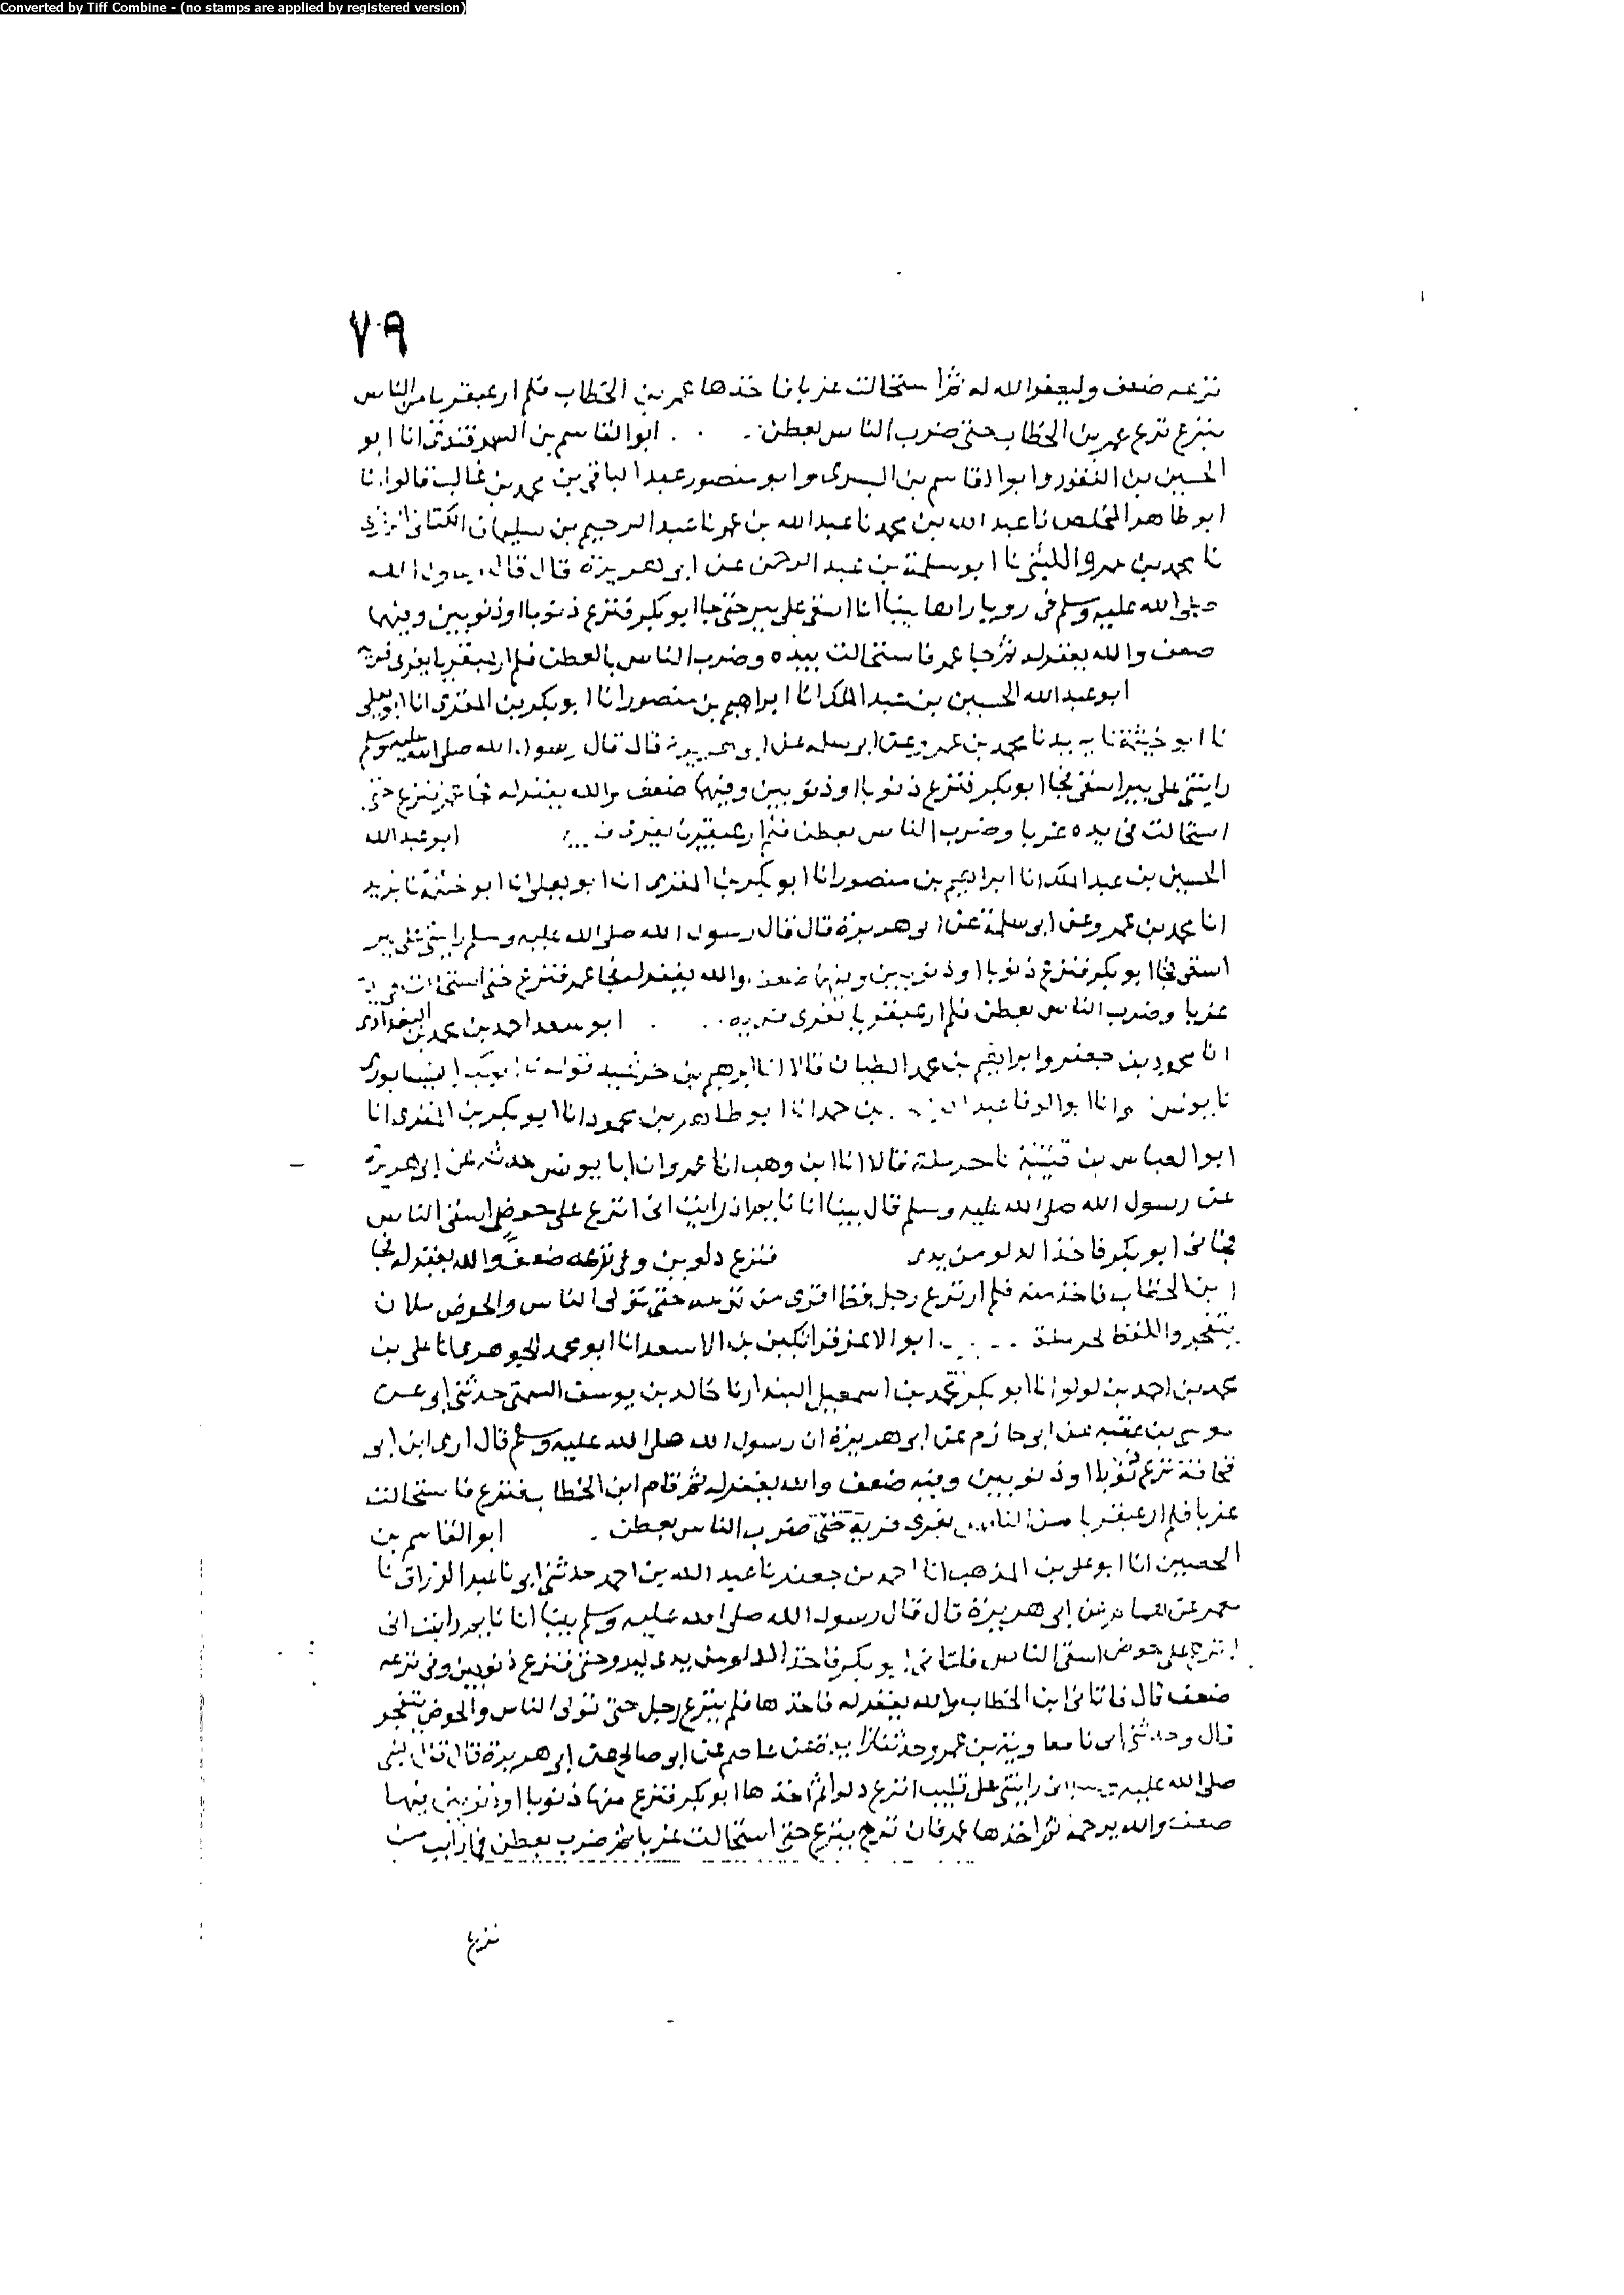 Converted by Tiff Combine - (no stamps are applied by registered version)
٧٠٩
نزعه ضعف وليغفر الله له ثم استحالت غربا فاخذها عمر بن الخطاب فلم ار عبقريا من الناس
ينزع نزع عمر بن الخطاب حتى ضرب الناس بعطن ابو القاسم بن السمرقندي انا ابو
الحسين بن النقور وابو القاسم بن البسري وابو منصور عبد الباقي بن محمد بن غالب قالوا انا
ابو طاهر المخلص نا عبد الله بن محمد نا عبد الله بن عمر نا عبد الرحيم بن سليمان الكتاني
نا محمد بن عمرو الليثي نا ابو سلمة بن عبد الرحمن عن ابي هريرة قال قال رسول الله
صلى الله عليه وسلم في رويا راها بينا انا اسقي على بير حتى جا ابو بكر فنزع ذنوبا او ذنوبين وفيهما
ضعف والله يغفر له ثم جا عمر فاستحالت بيده وضرب الناس بالعطن فلم ار عبقريا يفري فريه
ابو عبد الله الحسين بن عبد الملك انا ابراهيم بن منصور انا ابو بكر بن المقري انا ابو يعلى
نا ابو خيثمة نا يزيد نا محمد بن عمرو عن ابي سلمه عن ابي هريرة قال قال رسول الله صلى الله عليه وسلم
رايتني على بير اسقي فجا ابو بكر فنزع ذنوبا او ذنوبين وفيهما ضعف والله يغفر له فنزع حتى
استحالت في يده غربا وضرب الناس بعطن فلم ار عبقريا يفري ابو عبد الله
الحسين بن عبد الملك انا ابراهيم بن منصور انا ابو بكر بن المقري انا ابو يعلى نا ابو خيثمة نا يزيد
انا محمد بن عمرو عن ابي سلمة عن ابي هريرة قال قال رسول الله صلى الله عليه وسلم رايتني على بير
اسقي فجا ابو بكر فنزع ذنوبا او ذنوبين وفيهما ضعف والله يغفر له فجا عمر فنزع حتى استحالت في يده
غربا وضرب الناس بعطن فلم ار عبقريا يفري فريه ابو سعد احمد بن محمد بن البغدادي
انا محمود بن جعفر وابراهيم بن محمد الطيان قالا انا ابرهيم بن خرشيد قوله نا ابو بكر النيسابوري
نا يونس وانا ابو الوفا عبد بن حمد انا ابو طاهر بن محمود انا ابو بكر بن المقري انا
ابو العباس بن قتيبة نا حرملة قالا انا ابن وهب انا عمرو ان ابا يونس حدثه عن ابي هريرة
عن رسول الله صلى الله عليه وسلم قال بينا انا نايم اذ رايت اني انزع على حوض اسقي الناس
فجاني ابو بكر فاخذ الدلو من يدي فنزع دلوين وفي نزعه ضعف والله يغفر له فجا
ابن الخطاب فاخذ منه فلم ار نزع رجل قط اقوى من نزعه حتى تولى الناس والحوض ملان
يتفجر واللفظ لحرملة ابو الاعز قراتكين بن الاسعد انا ابو محمد الجوهري انا علي بن
محمد بن احمد بن لولو انا ابو بكر محمد بن اسمعيل البندار نا خالد بن يوسف السمتي حدثني ابي عن
موسى بن عقبه عن ابي حازم عن ابي هريرة ان رسول الله صلى الله عليه وسلم قال ارى ابن ابي
قحافة نزع ذنوبا او ذنوبين وفيه ضعف والله يغفر له ثم قام ابن الخطاب فنزع فاستحالت
غربا فلم ار عبقريا من الناس يفري فرية حتى ضرب الناس بعطن ابو القاسم بن
الحصين انا ابو علي بن المذهب انا احمد بن جعفر نا عبد الله بن احمد حدثني ابي نا عبد الرزاق نا
معمر عن همام عن ابي هريرة قال قال رسول الله صلى الله عليه وسلم بينا انا نايم رايت اني
انزع على حوض اسقي الناس فاتاني ابو بكر فاخذ الدلو من يدي ليروحني فنزع ذنوبين وفي نزعه
ضعف قال فاتاني ابن الخطاب والله يغفر له فاخذها فلم ينزع رجل حتى تولى الناس والحوض يتفجر
قال وحدثني ابي نا معاوية بن عمرو حدثنا زايدة عن عاصم عن ابي صالح عن ابي هريرة قال قال النبي
صلى الله عليه وسلم اني رايتني على قليب انزع دلوا ثم اخذها ابو بكر فنزع منها ذنوبا او ذنوبين فيهما
ضعف والله يرحمه ثم اخذها عمر فان نزع ينزع حتى استحالت غربا ثم ضرب بعطن فما رايت من
نزع